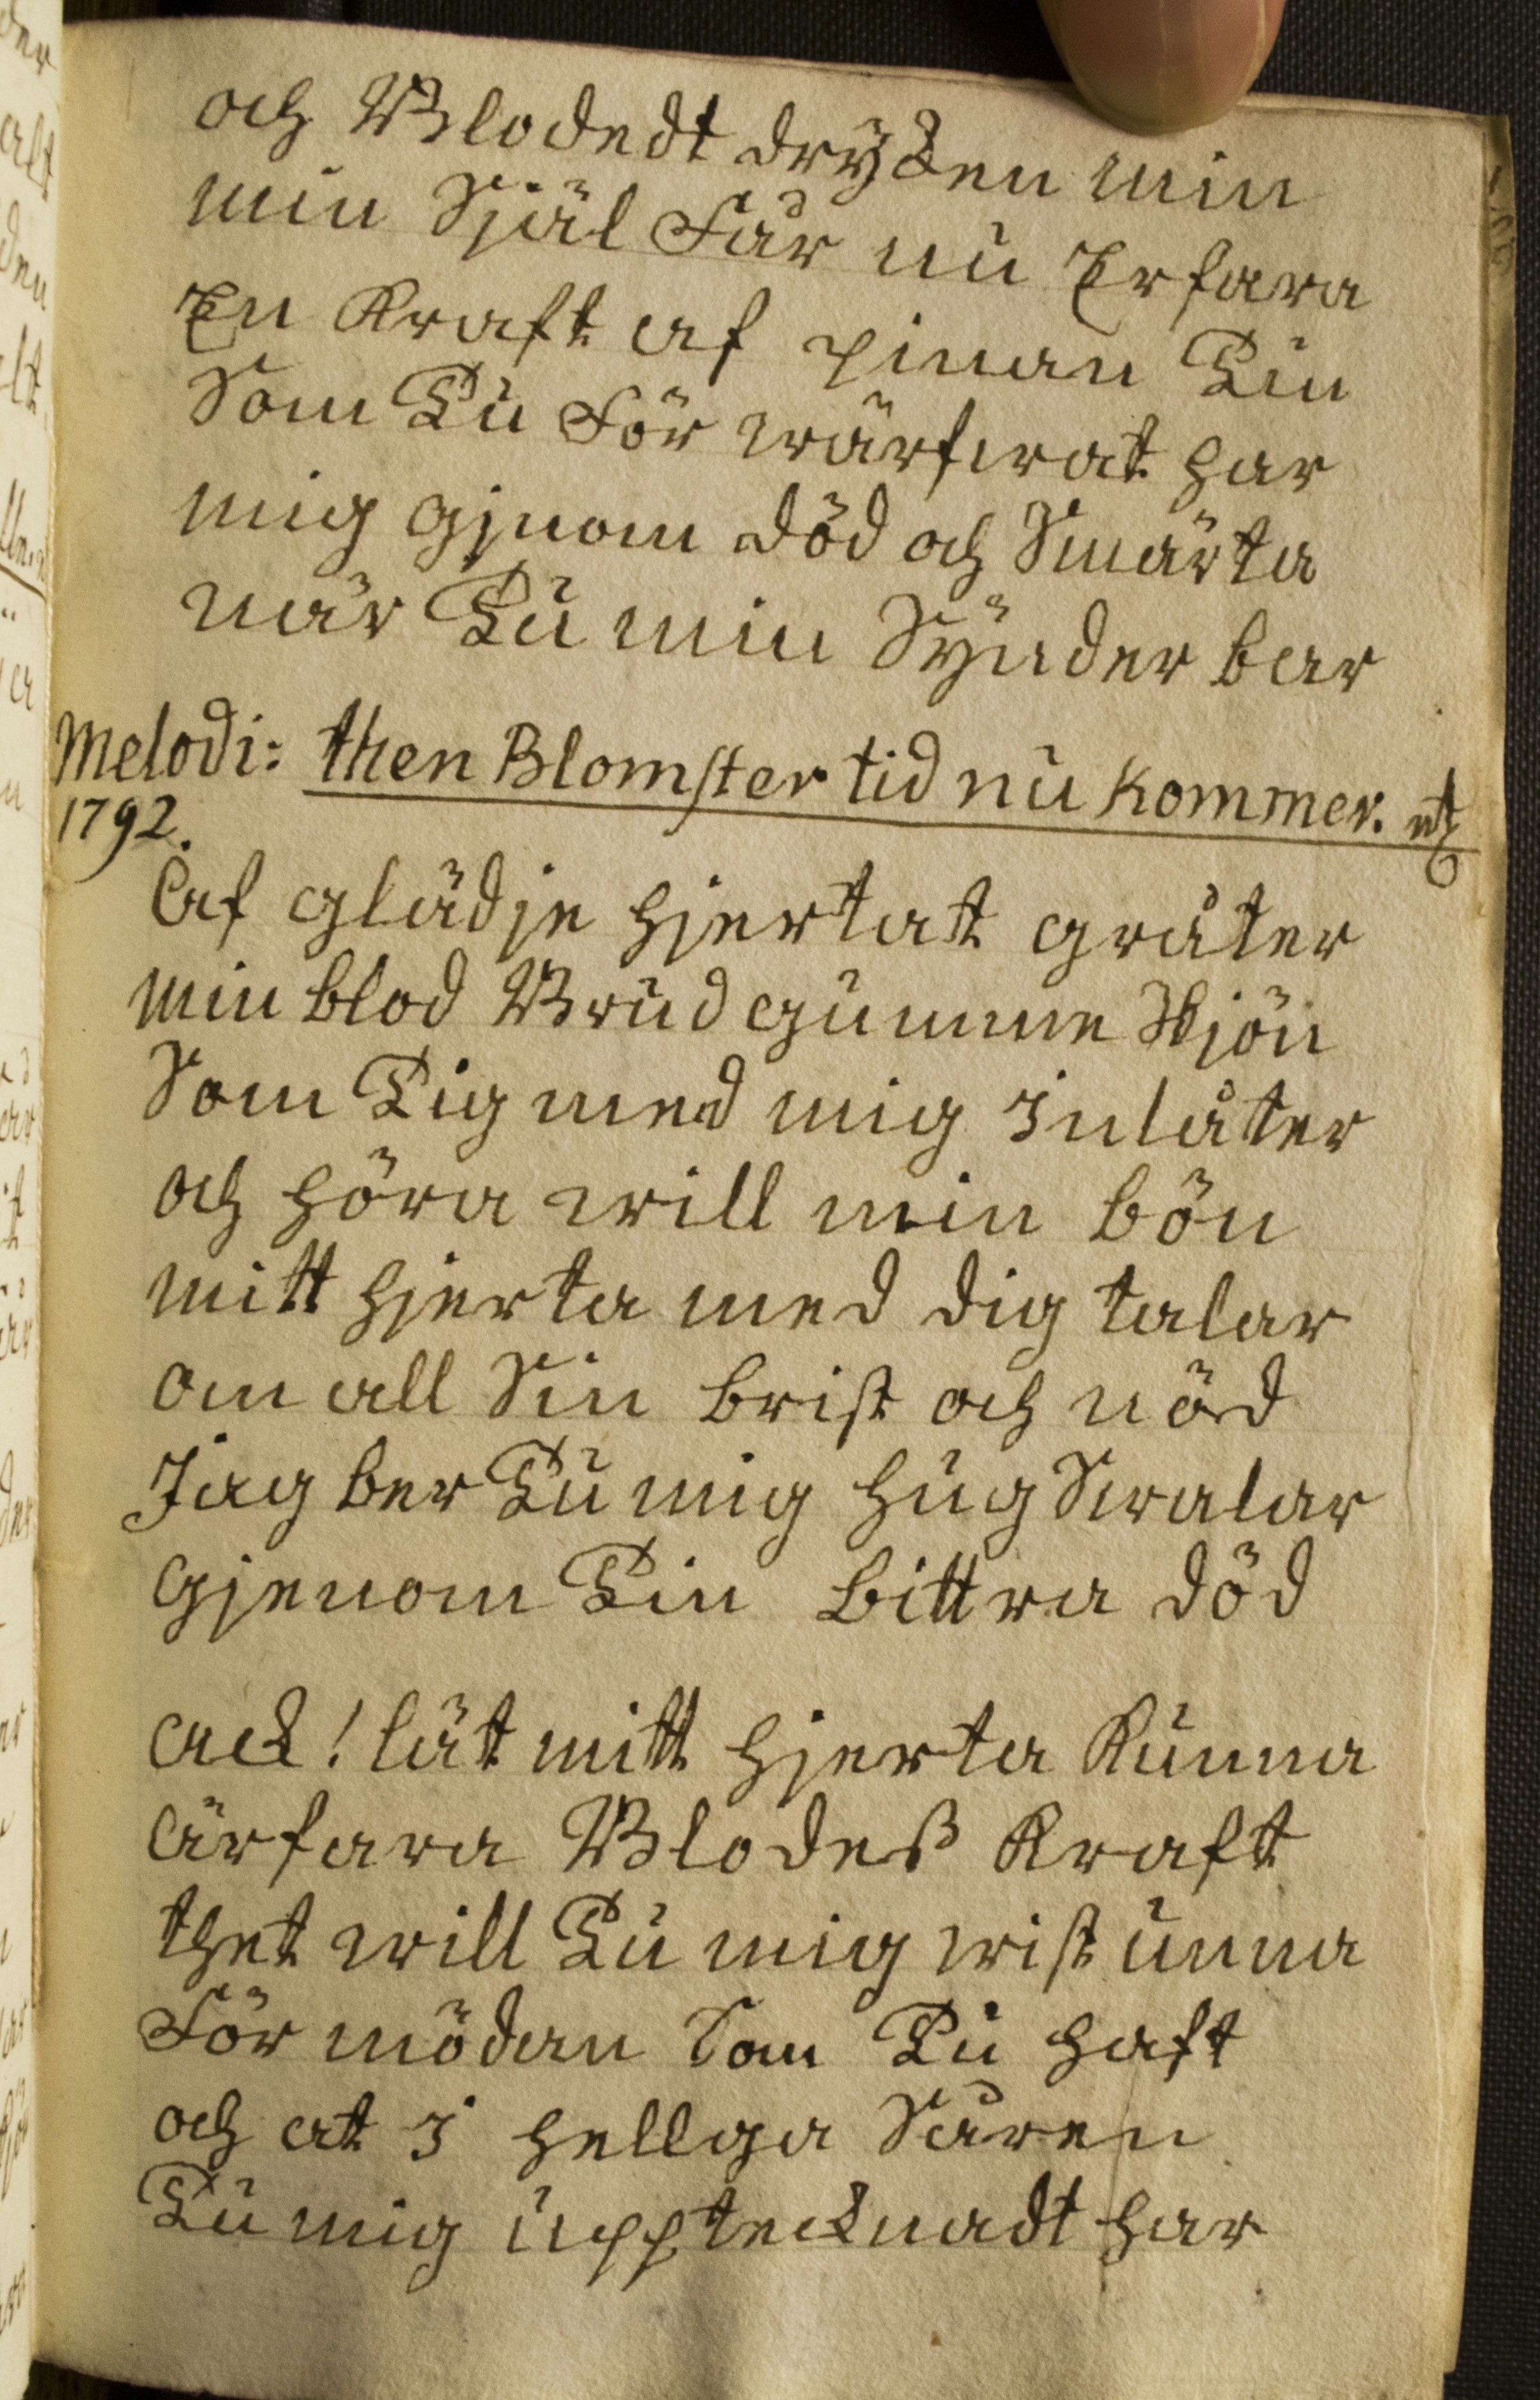 och Blodedt drycken min
min Själ Får nu Erfara
En Kraft af pinan Din
Som Du För wärfwat har
mig gjnom död och Smärta
när Du min Synder bar
Melodi: then Blomster tid nu kommer.
1792.
Af glädje hjertat gråter
min blod Brudgumme Skjön
Som Dig med mig inlåter
och höra will min bön
mitt hjerta med dig talar
om all Sin brist och nöd
Jag ber Du mig hugswalar
gjenom Din bittra död
ack! låt mitt hjerta Kunna
ärfara Blodeß Kraft
thet will Du mig wist unna
För mödan Som Du haft
och at i hellga Såren
Du mig upptecknadt har